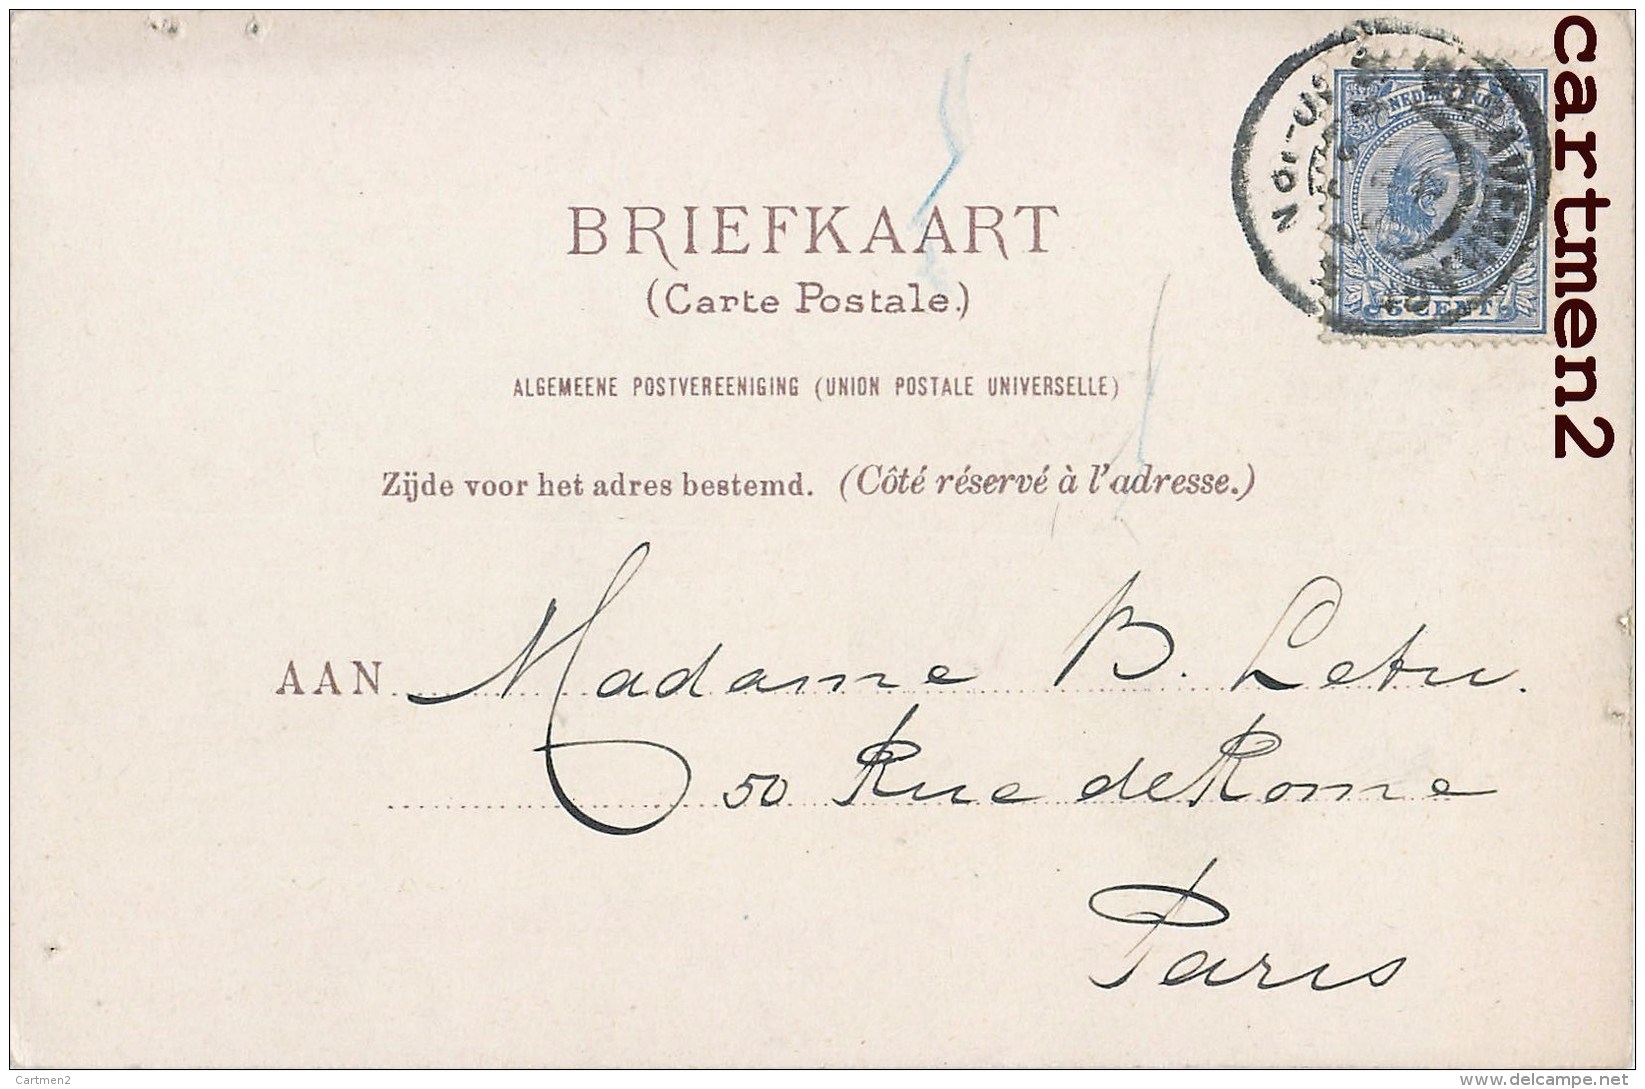 BRIEFKAART
(Carte Postale.)
ALGEMEENE POSTVEREENIGING (UNION POSTALE UNIVERSELLE)
Zijde voor het adres bestemd. (Côté réservé à l'adresse.)
AAN Madame B. Letu.
50 Rue de Rome
Paris
5 CENT
cartmen2
Cartmen2
www.delcampe.net